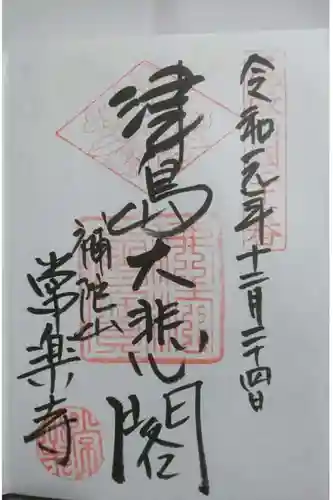 令和元年十二月二十四日
津島大悲閣
補陀山
常楽寺